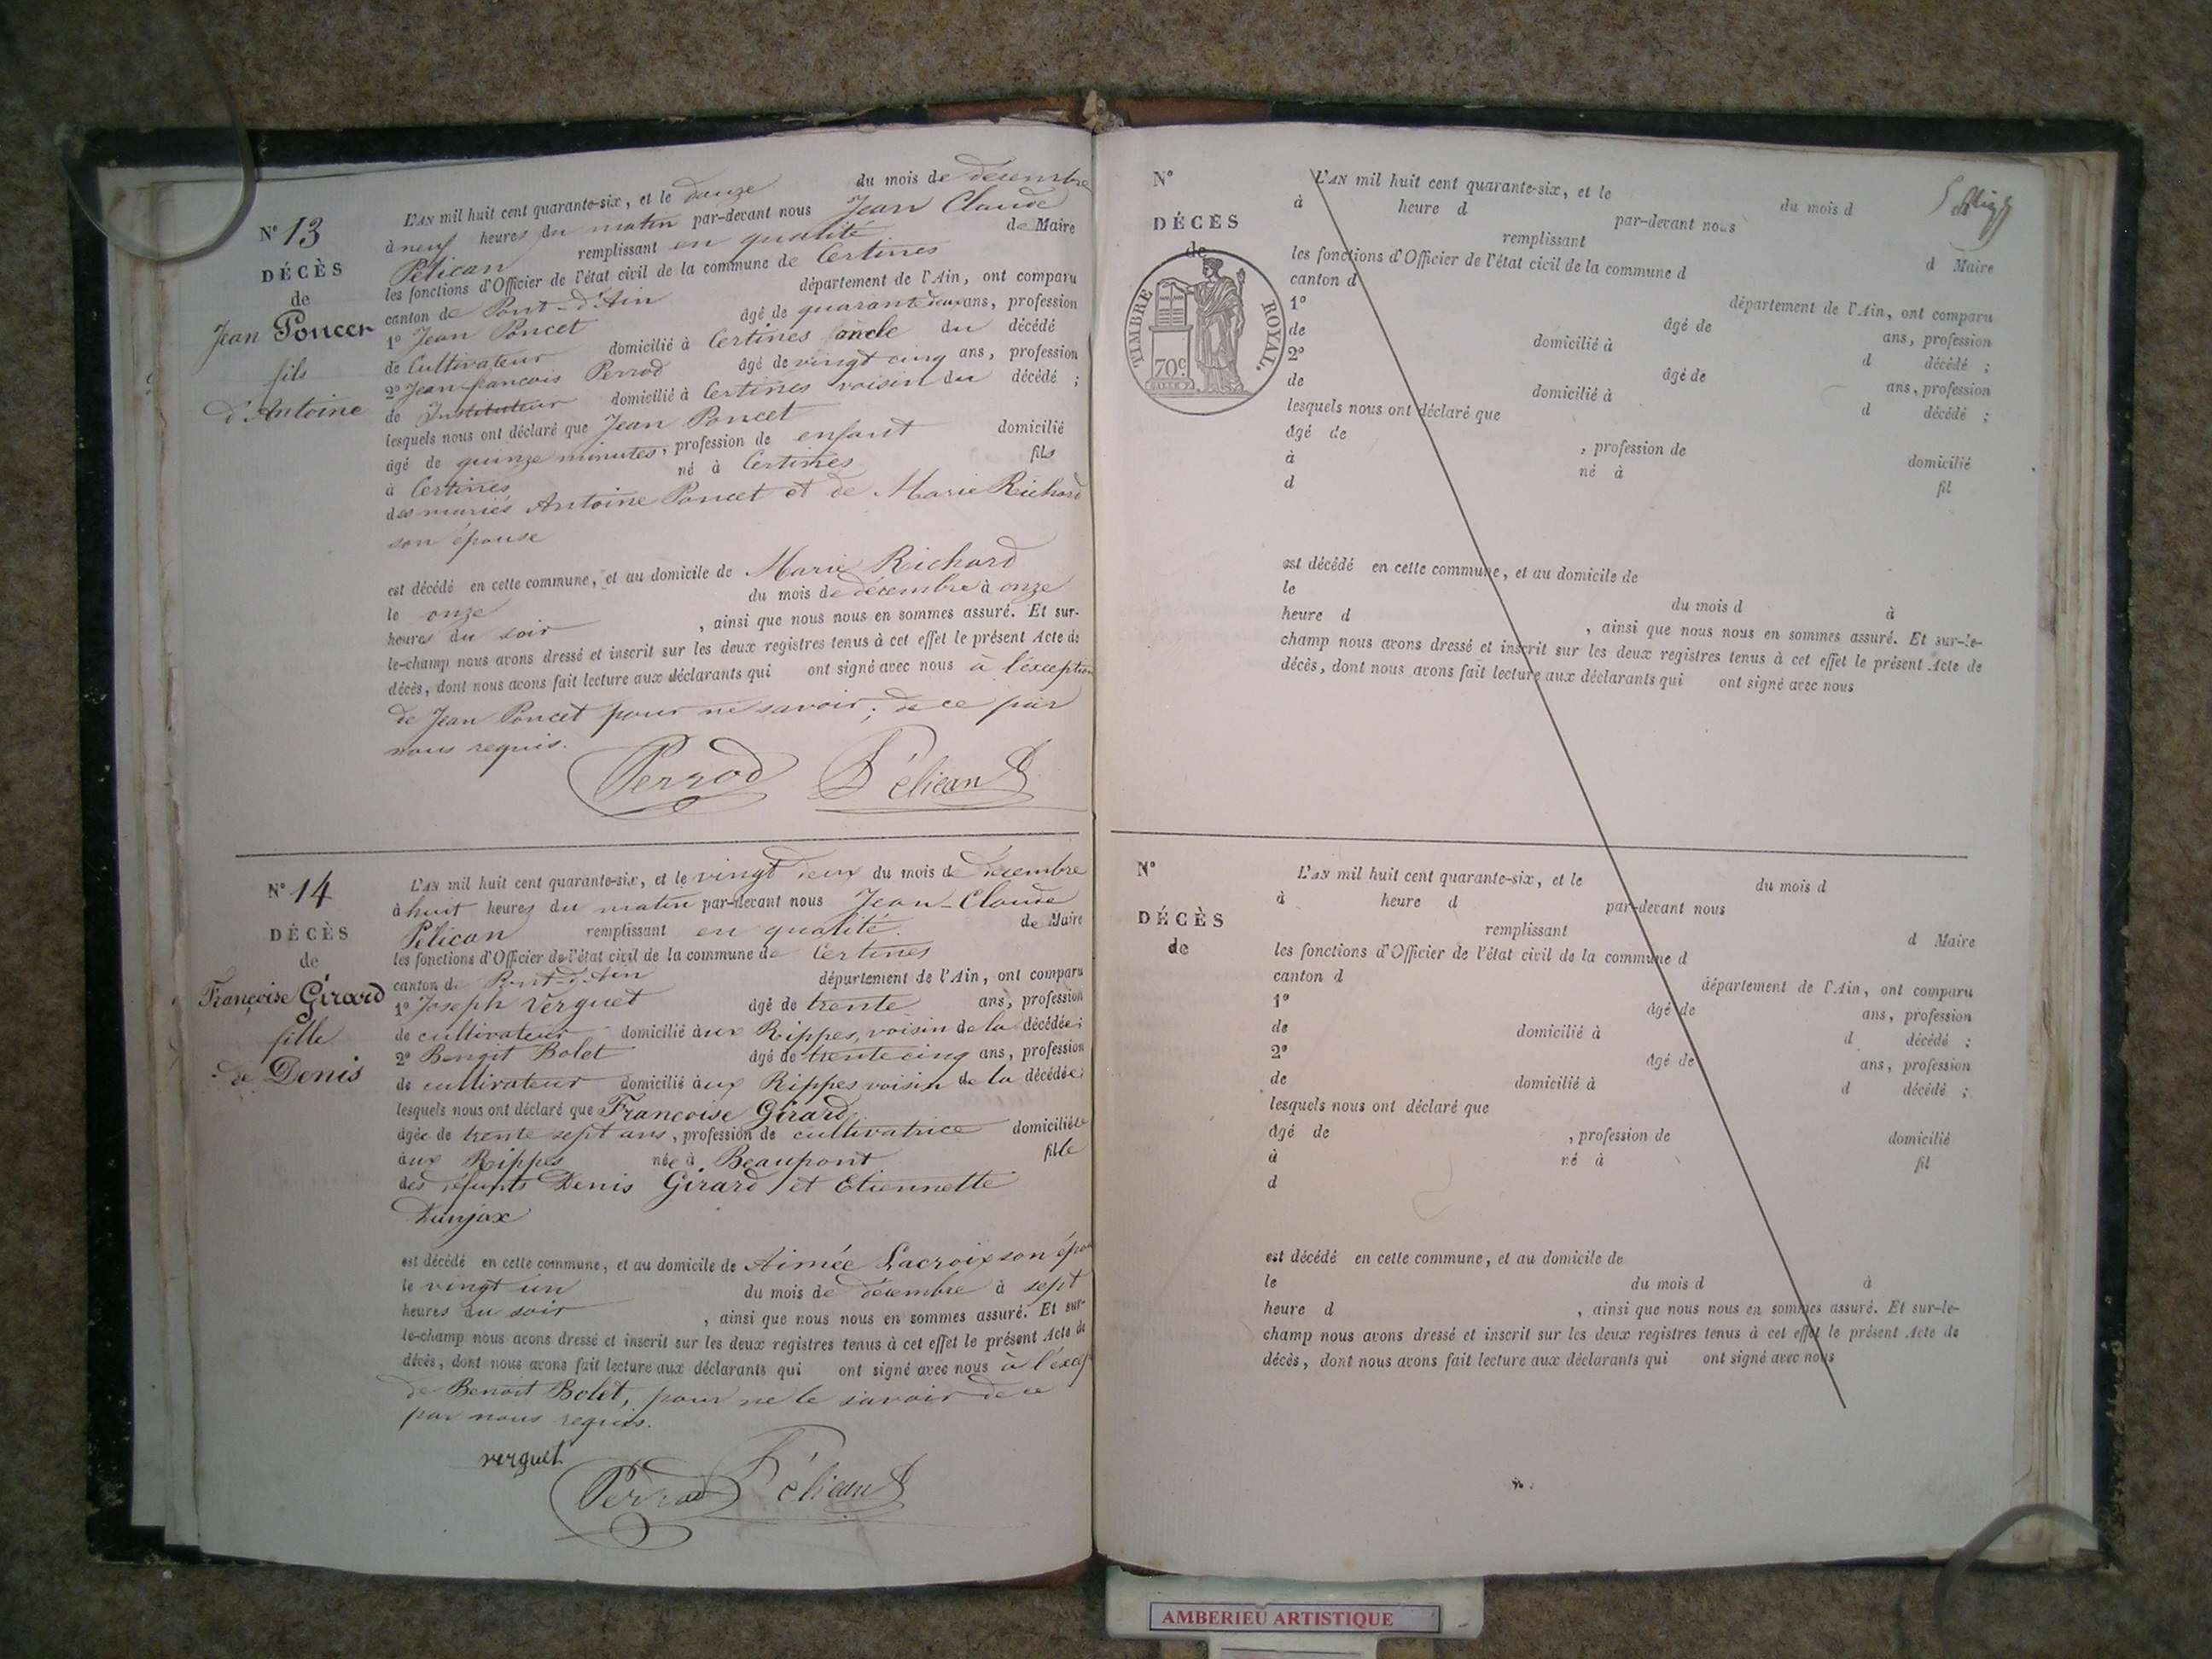 N° 13
DÉCÈS
de
Jean Poncet
fils
d'Antoine
L'AN mil huit cent quarante-six, et le douze du mois de décembre
à neuf heures du matin par-devant nous Jean Claude
Pélican remplissant en qualité de Maire
les fonctions d'Officier de l'état civil de la commune de Certines
canton de Pont-d'Ain département de l'Ain, ont comparu
1° Jean Poncet âgé de quarante deux ans, profession
de Cultivateur domicilié à Certines oncle du décédé
2° Jean-francois Perrod âgé de vingt cinq ans, profession
de Instituteur domicilié à Certines voisin du décédé ;
lesquels nous ont déclaré que Jean Poncet
âgé de quinze minutes, profession de enfant domicilié
à Certines né à Certines fils
des mariés Antoine Poncet et de Marie Richard
son épouse
est décédé en cette commune, et au domicile de Marie Richard
le onze du mois de décembre à onze
heures du soir , ainsi que nous nous en sommes assuré. Et sur-
le-champ nous avons dressé et inscrit sur les deux registres tenus à cet effet le présent Acte de
décès, dont nous avons fait lecture aux déclarants qui ont signé avec nous à l'exception
de Jean Poncet pour ne savoir ; de ce par
nous requis.
Perrod Pélican
N° 14
DÉCÈS
de
Françoise Girard
fille
de Denis
L'AN mil huit cent quarante-six, et le vingt deux du mois de décembre
à huit heures du matin par-devant nous Jean-Claude
Pélican remplissant en qualité de Maire
les fonctions d'Officier de l'état civil de la commune de Certines
canton de Pont-d'Ain département de l'Ain, ont comparu
1° Joseph Verguet âgé de trente ans, profession
de cultivateur domicilié aux Rippes, voisin de la décédée ;
2° Benoit Bolet âgé de trente cinq ans, profession
de cultivateur domicilié aux Rippes voisin de la décédée ;
lesquels nous ont déclaré que Françoise Girard
âgée de trente sept ans, profession de cultivatrice domiciliée
aux Rippes née à Beaupont fille
des défunts Denis Girard et Etiennette
est décédé en cette commune, et au domicile de Aimée Lacroix son
le vingt un du mois de décembre à sept
heures du soir , ainsi que nous nous en sommes assuré. Et sur-
le-champ nous avons dressé et inscrit sur les deux registres tenus à cet effet le présent Acte de
décès, dont nous avons fait lecture aux déclarants qui ont signé avec nous à
de Benoit Bolet, pour ne le savoir de ce
par nous requis.
verguet
Perrod Pélican
N°
DÉCÈS
de
TIMBRE ROYAL.
70c.
L'AN mil huit cent quarante-six, et le du mois d
à heure d par-devant nous
remplissant d Maire
les fonctions d'Officier de l'état civil de la commune d
canton d département de l'Ain, ont comparu
1° âgé de ans, profession
de domicilié à d décédé ;
2° âgé de ans, profession
de domicilié à d décédé ;
lesquels nous ont déclaré que
âgé de , profession de domicilié
à né à fil
d
est décédé en cette commune, et au domicile de
le du mois d à
heure d , ainsi que nous nous en sommes assuré. Et sur-le-
champ nous avons dressé et inscrit sur les deux registres tenus à cet effet le présent Acte de
décès, dont nous avons fait lecture aux déclarants qui ont signé avec nous
N°
DÉCÈS
de
L'AN mil huit cent quarante-six, et le du mois d
à heure d par-devant nous
remplissant d Maire
les fonctions d'Officier de l'état civil de la commune d
canton d département de l'Ain, ont comparu
1° âgé de ans, profession
de domicilié à d décédé ;
2° âgé de ans, profession
de domicilié à d décédé ;
lesquels nous ont déclaré que
âgé de , profession de domicilié
à né à fil
d
est décédé en cette commune, et au domicile de
le du mois d à
heure d , ainsi que nous nous en sommes assuré. Et sur-le-
champ nous avons dressé et inscrit sur les deux registres tenus à cet effet le présent Acte de
décès, dont nous avons fait lecture aux déclarants qui ont signé avec nous
AMBERIEU ARTISTIQUE